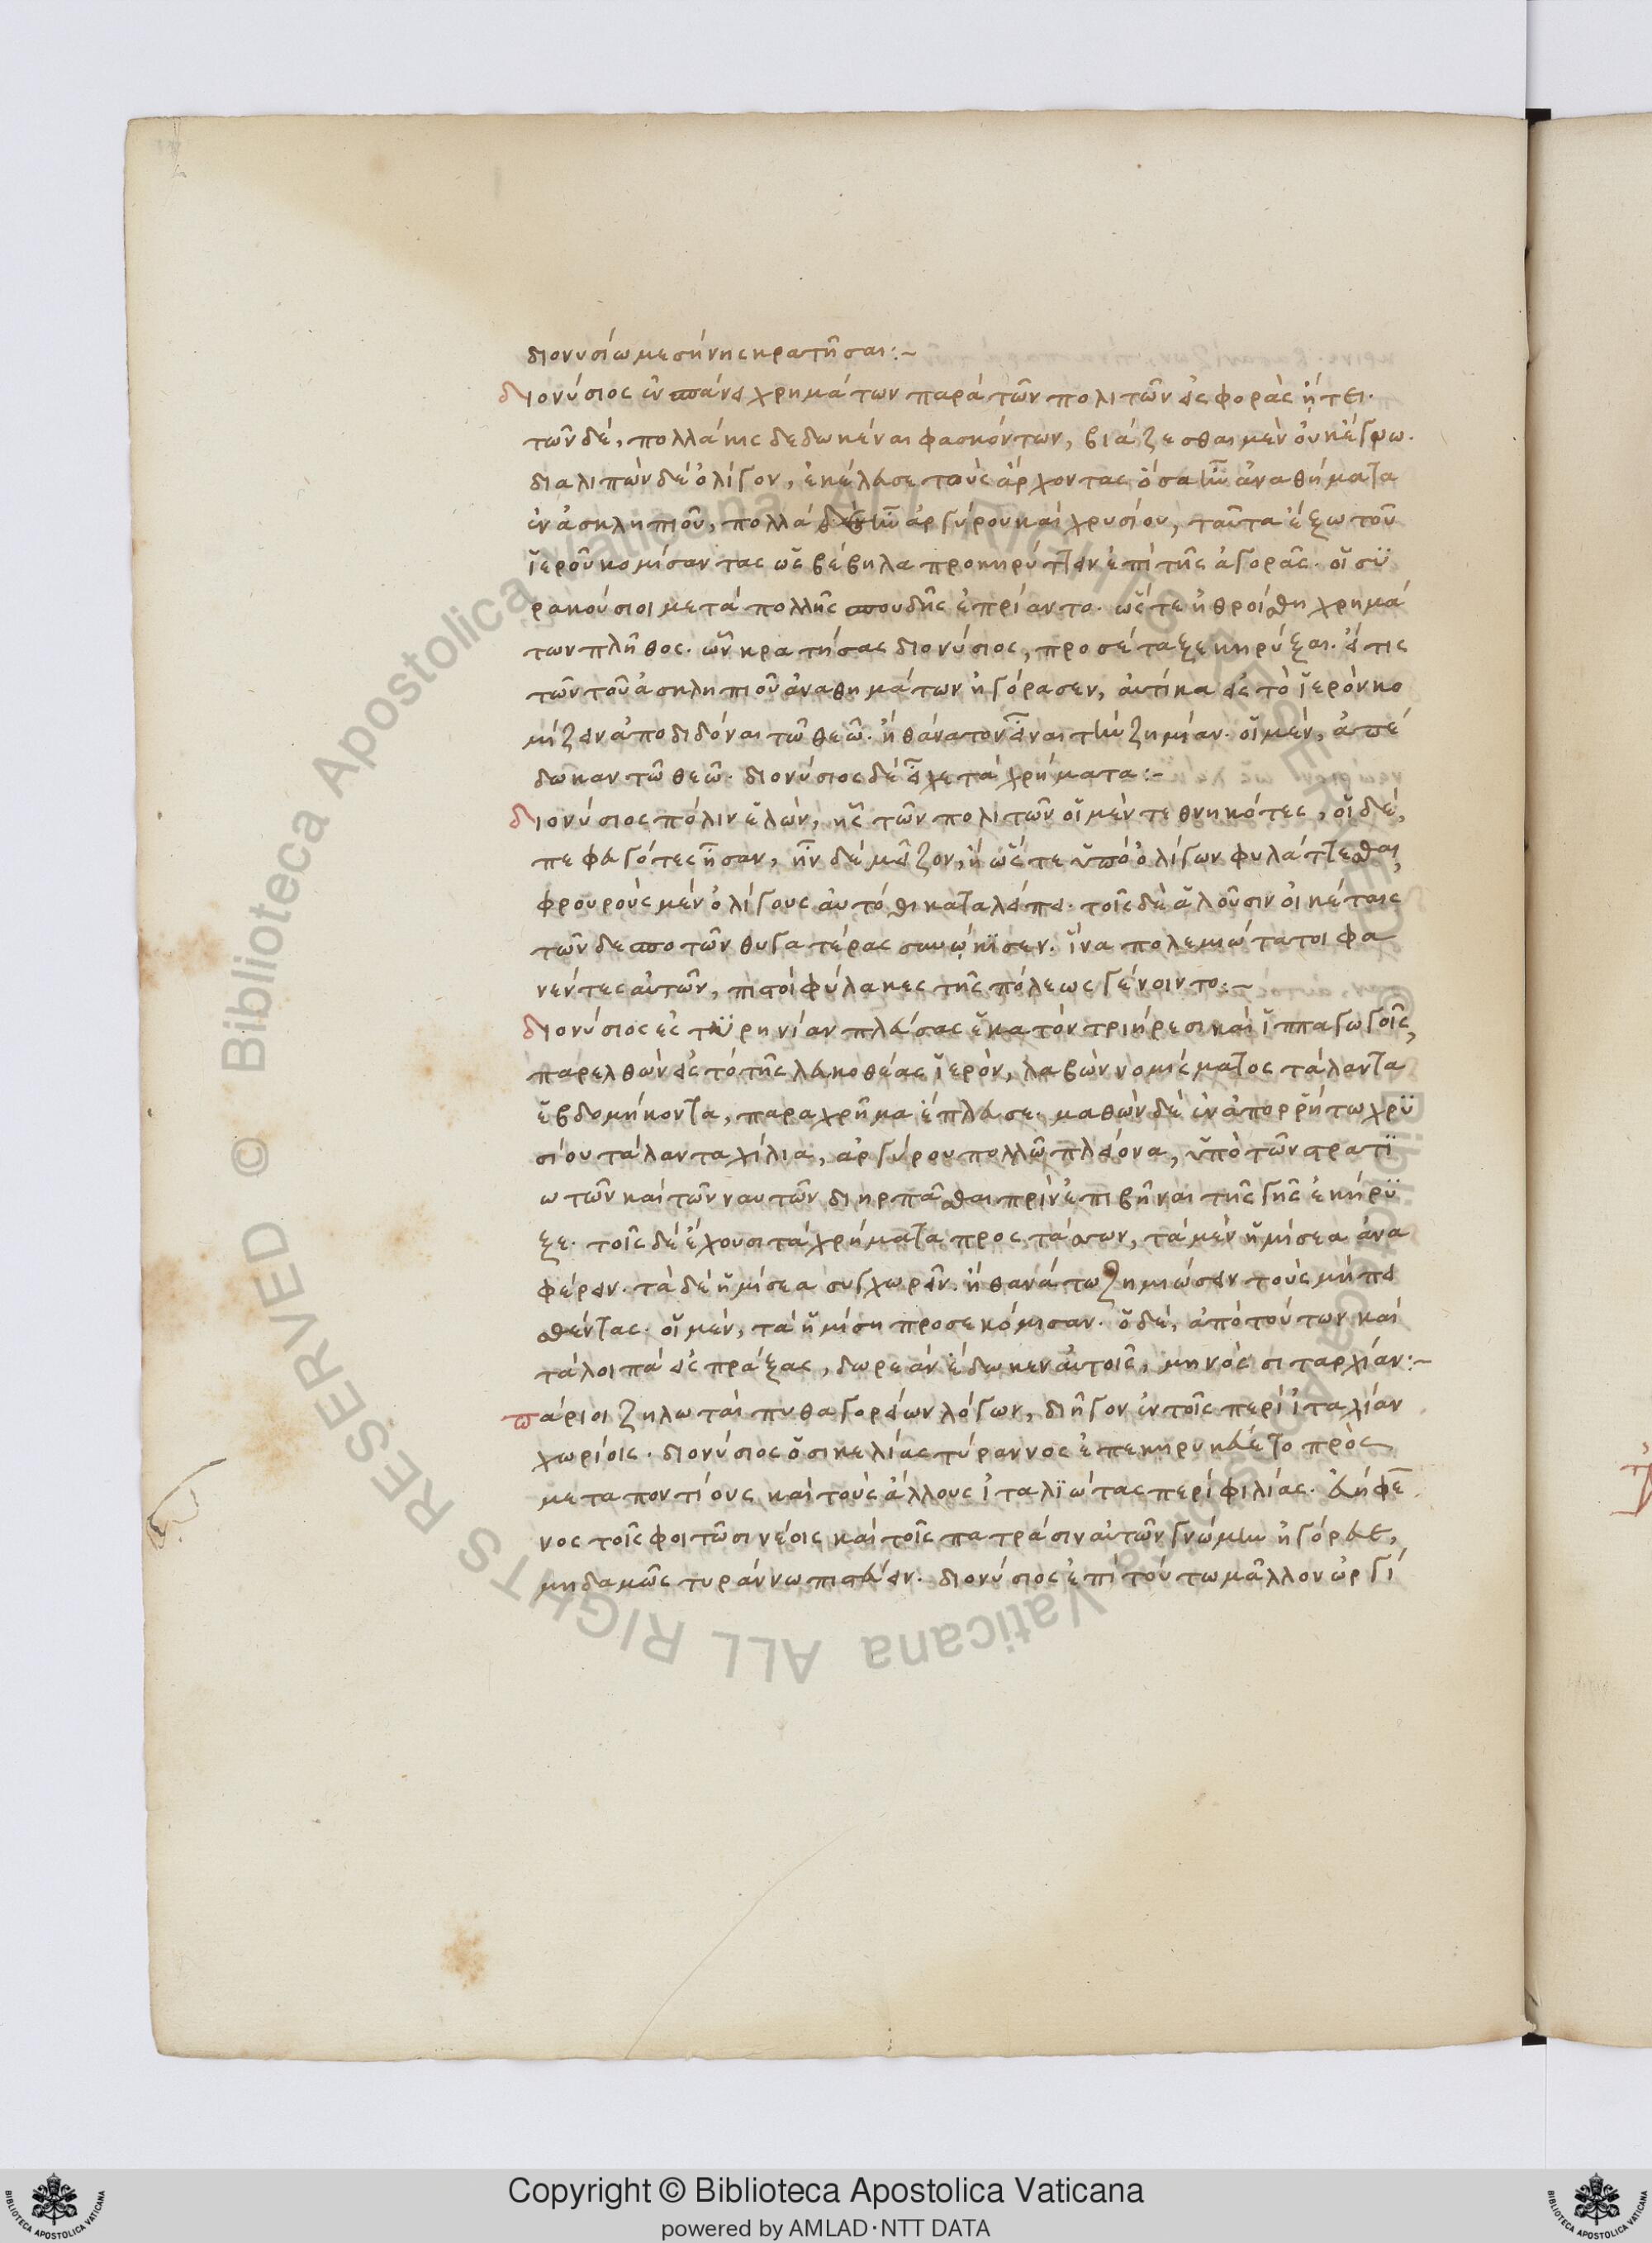 διονυσίω μεσήνης κρατῆσαι:~
διονύσιος ἐν σπάνει χρημάτων παρὰ τῶν πολιτῶν εἰς φορὰς ἤτει.
τῶν δὲ, πολλάκις δεδωκέναι φασκόντων, βιάζεσθαι μὲν οὐκ ἔγνω.
διαλιπὼν δὲ ὀλίγον, ἐκέλευσε τοὺς ἄρχοντας ὅσα ἦν ἀναθήματα
ἐν ἀσκληπιοῦ, πολλὰ δὲ ἦν ἀργύρου καὶ χρυσίου, ταῦτα ἔξω τοῦ
ἱεροῦ κομίσαντας ὡς βέβηλα προκηρύττειν ἐπὶ τῆς ἀγορᾶς. οἱ συ
ρακούσιοι μετὰ πολλῆς σπουδῆς ἐπρίαντο. ὥστε ἠθροίσθη χρημά
των πλῆθος. ὧν κρατήσας διονύσιος, προσέταξε κηρύξαι. εἴ τις
τῶν τοῦ ἀσκληπιοῦ ἀναθημάτων ἠγόρασεν, αὐτίκα εἰς τὸ ἱερὸν κο
μίζειν ἀποδιδόναι τῶ θεῶ. ἢ θάνατον εἶναι τὴν ζημίαν. οἱ μὲν, ἀπέ
δωκαν τῶ θεῶ. διονύσιος δὲ εἶχε τὰ χρήματα:~
διονύσιος πόλιν ἑλὼν, ἧς τῶν πολιτῶν οἱ μὲν τεθνηκότες, οἱ δὲ,
πεφευγότες ἦσαν, ἦν δὲ μεῖζον, ἢ ὥστε ὑπὸ ὀλίγων φυλάττεσθαι,
φρουροὺς μὲν ὀλίγους αὐτόθι καταλείπει. τοῖς δὲ ἁλοῦσιν οἰκέταις
τῶν δεσποτῶν θυγατέρας συνώκισεν. ἵνα πολεμιώτατοι φα
νέντες αὐτῶν, πιστοὶ φύλακες τῆς πόλεως γένοιντο:~
διονύσιος ἐς τυρηνίαν πλεύσας ἑκατὸν τριήρεσι καὶ ἱππαγωγοῖς,
παρελθὼν εἰς τὸ τῆς λευκοθέας ἱερὸν, λαβὼν νομίσματος τάλαντα
ἑβδομήκοντα, παραχρῆμα ἔπλευσε. μαθὼν δὲ ἐν ἀπορρήτω χρυ
σίου τάλαντα χίλια, ἀργύρου πολλῶ πλείονα, ὑπὸ τῶν στρατι
ωτῶν καὶ τῶν ναυτῶν διηρπᾶσθαι πρὶν ἐπιβῆναι τῆς γῆς ἐκήρυ
ξε. τοῖς δὲ ἔχουσι τὰ χρήματα προστάσσων, τὰ μὲν ἡμίσεα ἀνα
φέρειν. τὰ δὲ ἡμίσεα συγχωρεῖν. ἢ θανάτω ζημιώσειν τοὺς μὴ πει
σθέντας. οἱ μὲν, τὰ ἡμίση προσεκόμισαν. ὁ δὲ, ἀπὸ τούτων καὶ
τὰ λοιπὰ εἰσπράξας, δωρεὰν ἔδωκεν αὐτοῖς, μηνὸς σιταρχίαν:~
πάριοι ζηλωταὶ πυθαγορείων λόγων, διῆγον ἐν τοῖς περὶ ἰταλίαν
χωρίοις. διονύσιος ὁ σικελίας τύραννος ἐπεκηρυκεύετο πρὸς
μεταποντίους καὶ τοὺς ἄλλους ἰταλιώτας περὶ φιλίας. εὐήφε
νος τοῖς φοιτῶσι νέοις καὶ τοῖς πατράσιν αὐτῶν γνώμην ἠγόρευε,
μηδαμῶς τυράννω πιστεύειν. διονύσιος ἐπὶ τούτω μᾶλλον ὠργί